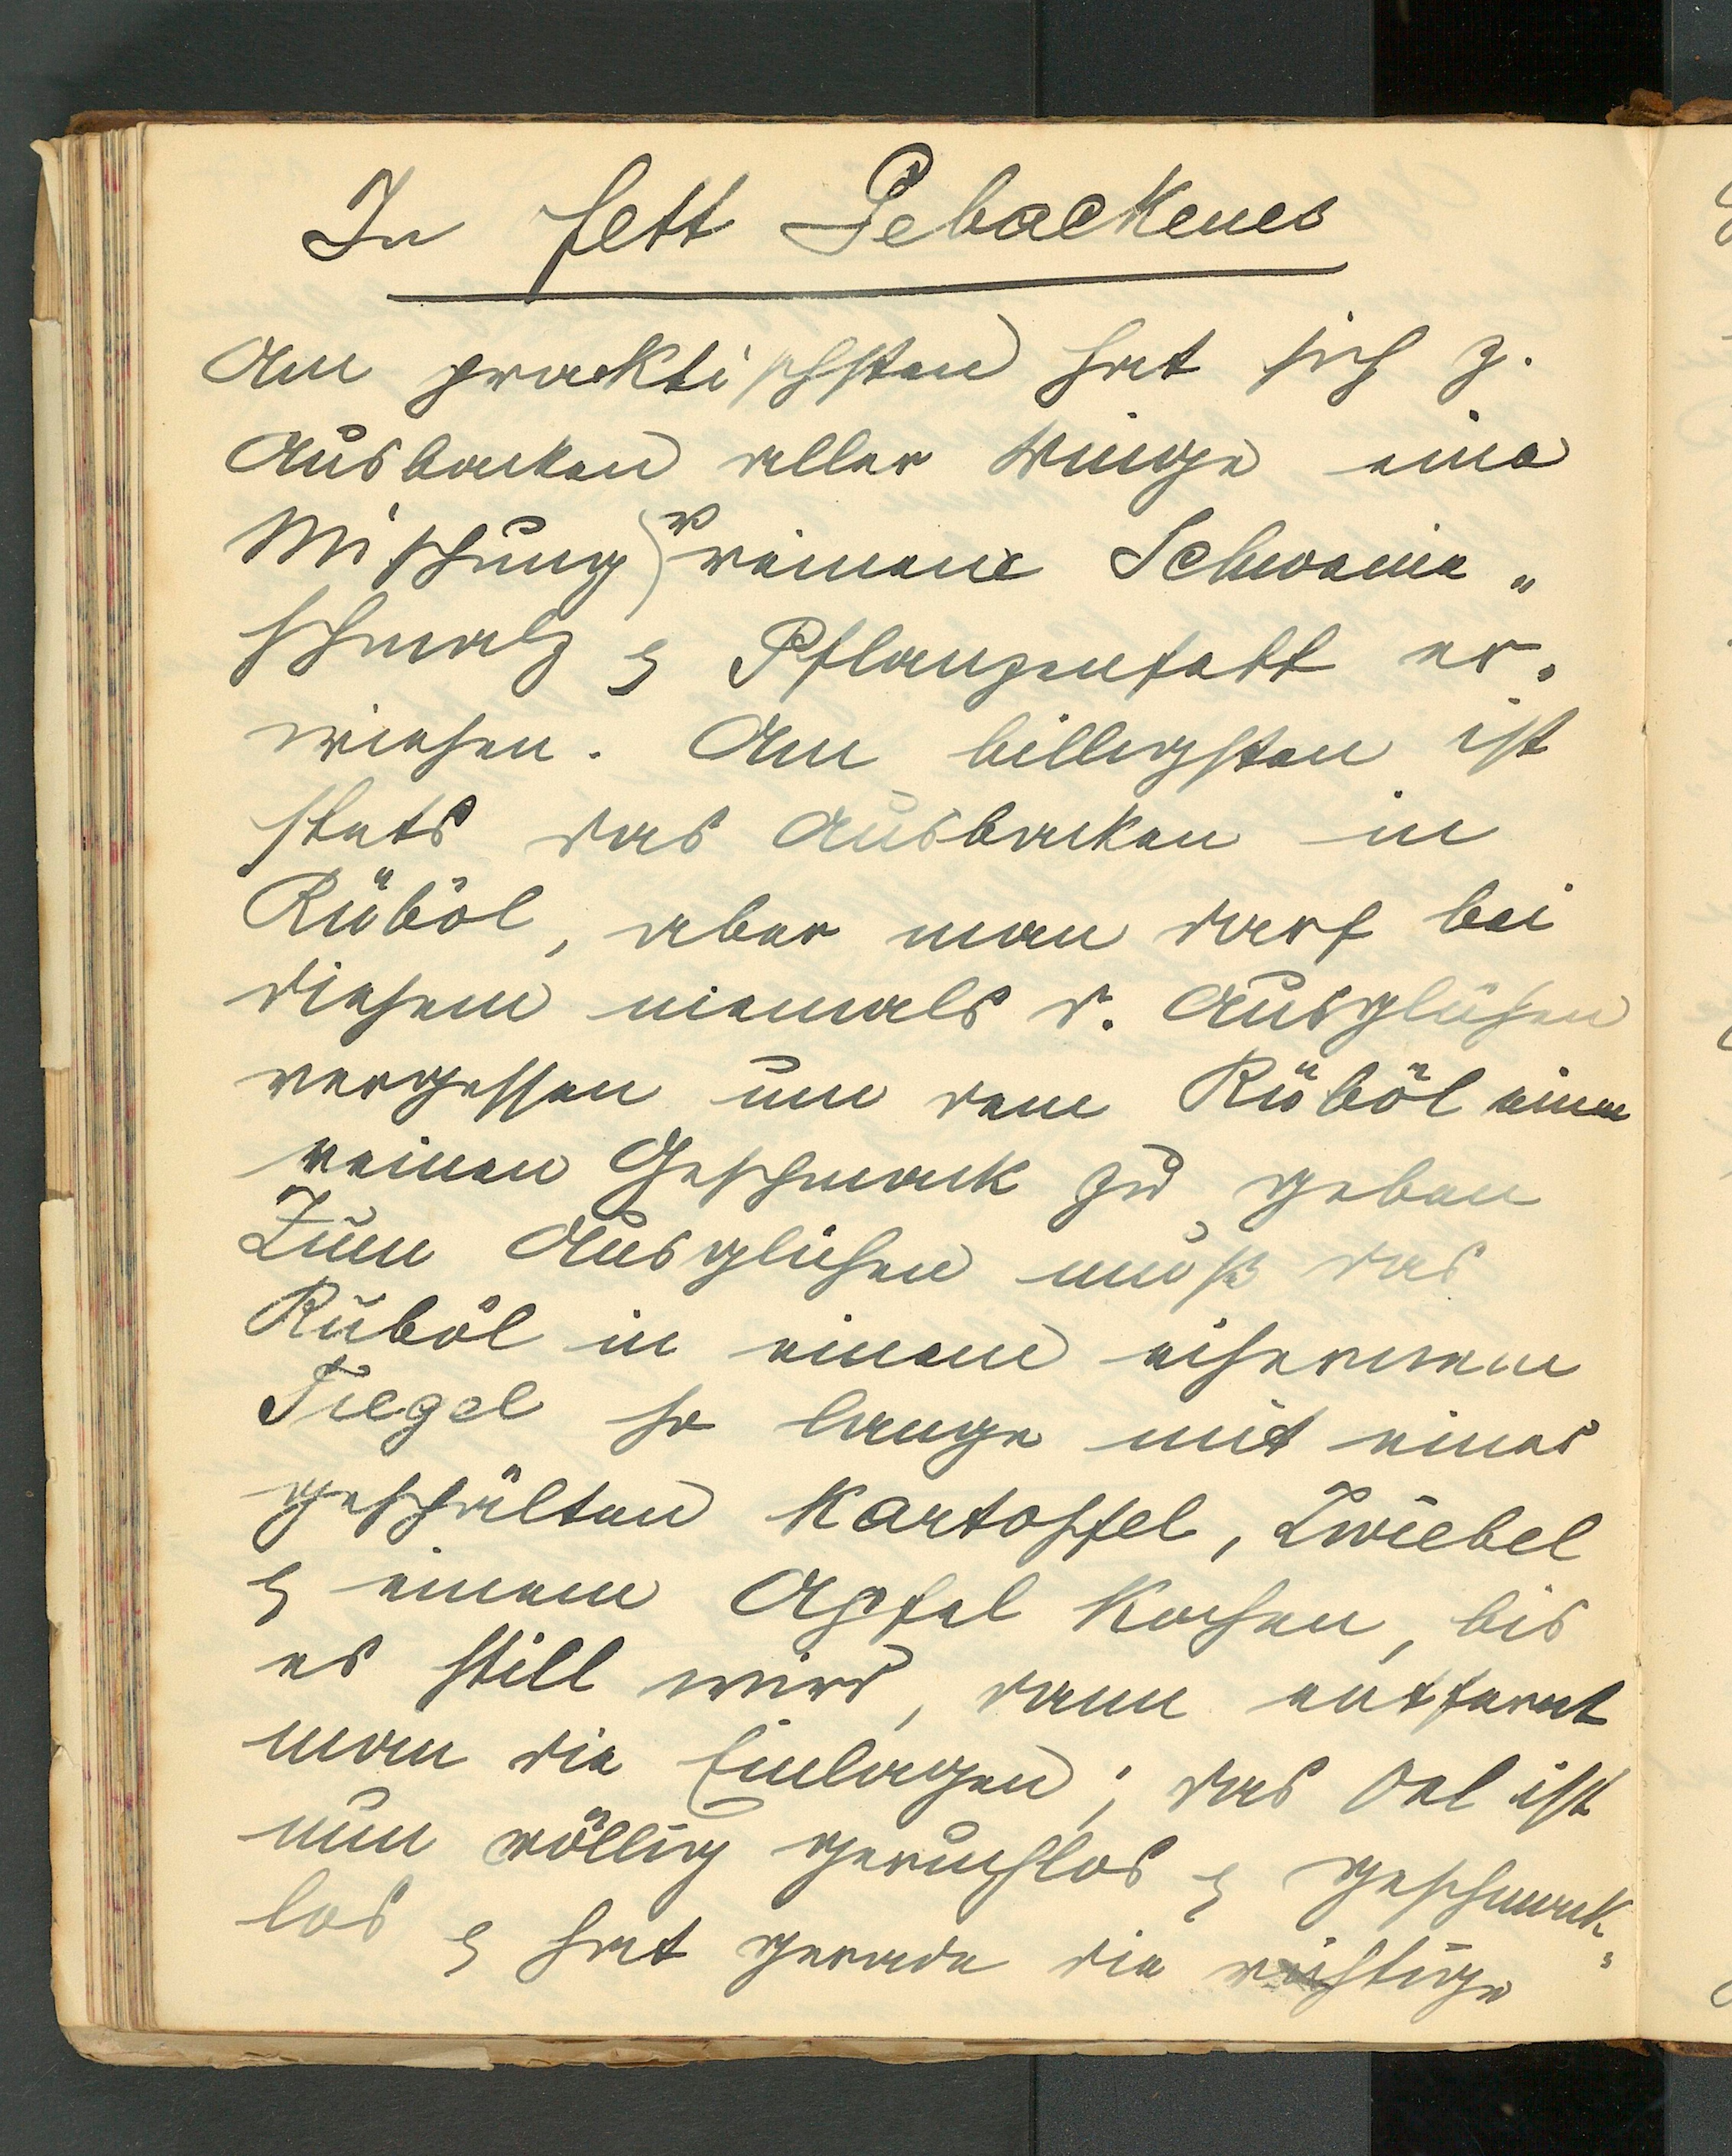 In Fett Gebackenes
Am praktischsten hat sich z.
Ausbacken aller Dinge eine
Mischung v reinem Schweine„
schmalz & Pflanzenfett er„
wiesen. Am billigsten ist
stets das Ausbacken in
Rüböl, aber man darf bei
diesem niemals d. Ausglühen
vergessen um dem Rüböl einen
reinen Geschmack zu geben
Zum Ausglühen muß das
Rüböl in einem eisernem
Tiegel so lange mit einer
geschälten Kartoffel, Zwiebel
& einem Apfel kochen, bis
es still wird, dann entfernt
man die Einlagen; das Oel ist
nun völlig geruchlos & geschmack„
los & hat gerade die richtige